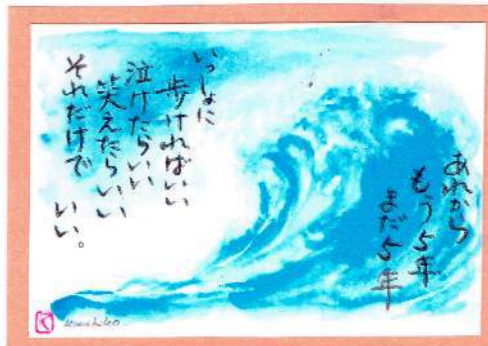 あれから
もう5年
まだ5年
いっしょに
歩ければいい
泣けたらいい
笑えたらいい
それだけで
いい。